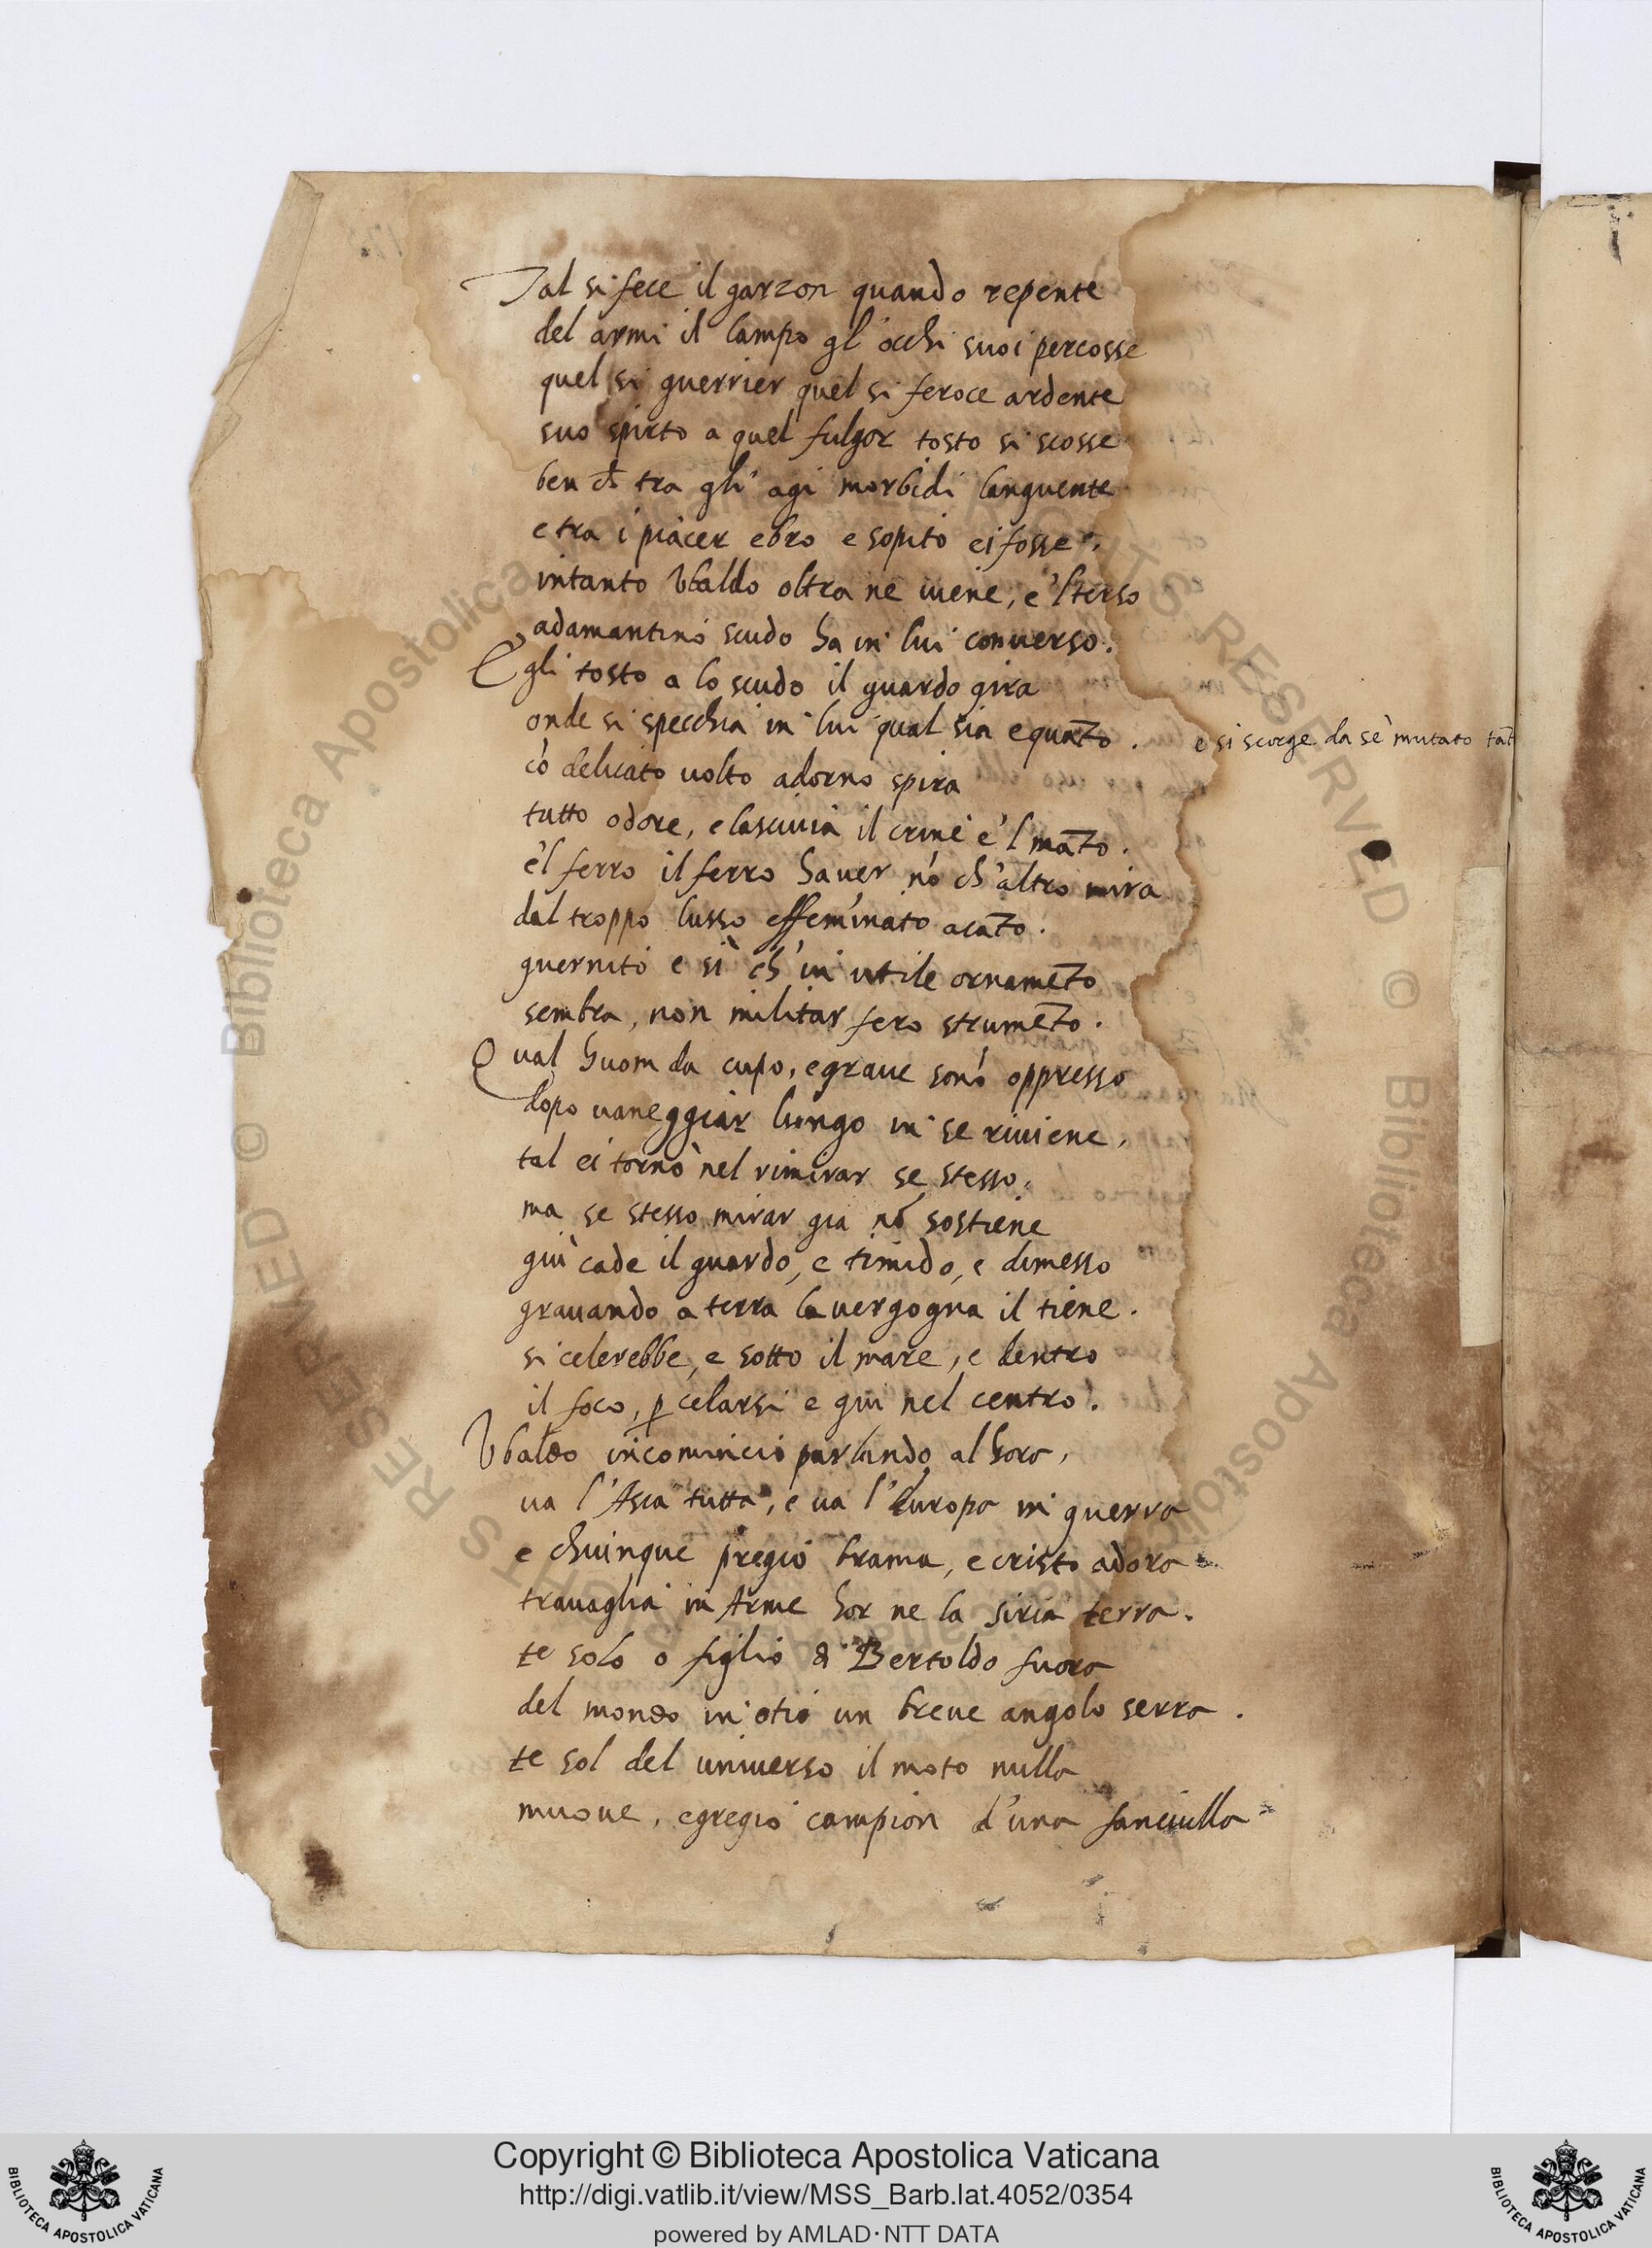 Tal si fece il garzon quando repente
del armi il lampo gl'occhi suoi percosse
quel si guerrier quel si feroce ardente
suo spirto a quel fulgor tosto si scosse
ben ch̃ tra gli agi morbidi languente
e tra i piacer ebro e sopito ei fosse.
intanto Vbaldo oltra ne uiene, e 'l terso
adamantino scudo ha in lui conuerso.
Egli tosto a lo scudo il guardo gira
onde si specchia in lui qual sia e quãto. e si scorge da sè mutato tãt
cõ delicato uolto adorno spira
tutto odore, e lasciuia il crine e 'l mãto.
e'l ferro il ferro hauer nõ ch'altro mira
dal troppo lusso effeminato acãto.
guernito e sì ch'in utile ornamẽto
sembra, non militar fero strumẽto.
Qual huom da cupo, e graue sonõ oppresso
dopo uaneggiar lungo in se riuiene,
tal ei tornò nel rimirar se stesso,
ma se stesso mirar gia nõ sostiene
giù cade il guardo, e timido, e dimesso
grauando a terra la uergogna il tiene.
si celerebbe, e sotto il mare, e dentro
il foco, ꝑ celarsi e giu nel centro.
Vbaldo incominciò parlando al hora,
ua l'Asia tutta, e ua l'Europa in guerra
e chiunque pregio brama, e cristo adora
trauaglia in Arme hor ne la siria terra.
te solo o figlio di Bertoldo fuora
del mondo in otio un breue angolo serra.
te sol del uniuerso il moto nulla
muoue, egregio campion d'una fanciulla
Copyright © Biblioteca Apostolica Vaticana
http://digi.vatlib.it/view/MSS_Barb.lat.4052/0354
powered by AMLAD·NTT DATA
BIBLIOTECA APOSTOLICA VATICANA
BIBLIOTECA APOSTOLICA VATICANA